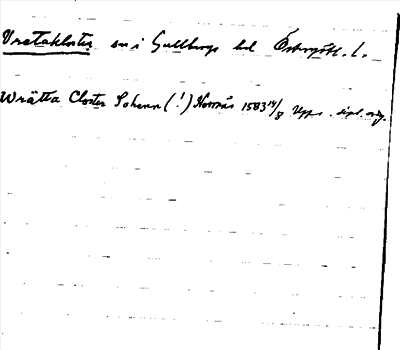 Vretakloster sn i Gullbergs hd Östergötl. l.
Wrätta Closter Sohenn (!) Norrnäs 1583 14/8 Upps. dipl. orig.